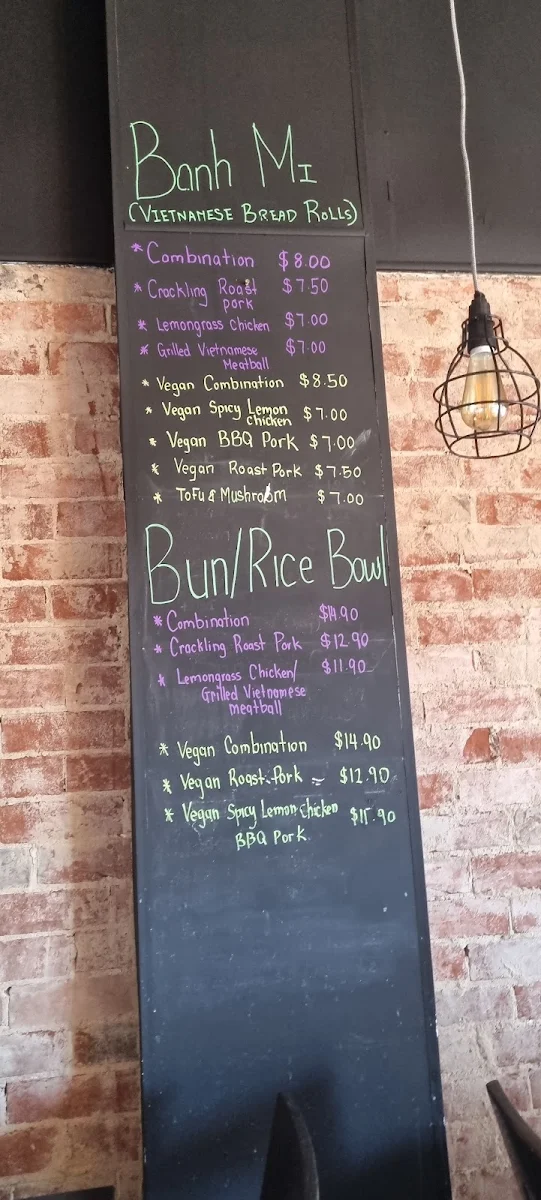 Banh Mi
(Vietnamese Bread Rolls)
* Combination $8.00
* Crackling Roast $7.50
pork
* Lemongrass Chicken $7.00
* Grilled Vietnamese $7.00
Meatball
* Vegan Combination $8.50
* Vegan Spicy Lemon $7.00
chicken
* Vegan BBQ Pork $7.00
* Vegan Roast Pork $7.50
* Tofu & Mushroom $7.00
Bun/Rice Bowl
* Combination $14.90
* Crackling Roast Pork $12.90
* Lemongrass Chicken/ $11.90
Grilled Vietnamese
meatball
* Vegan Combination $14.90
* Vegan Roast Pork $12.90
* Vegan Spicy Lemon Chicken $11.90
BBQ Pork